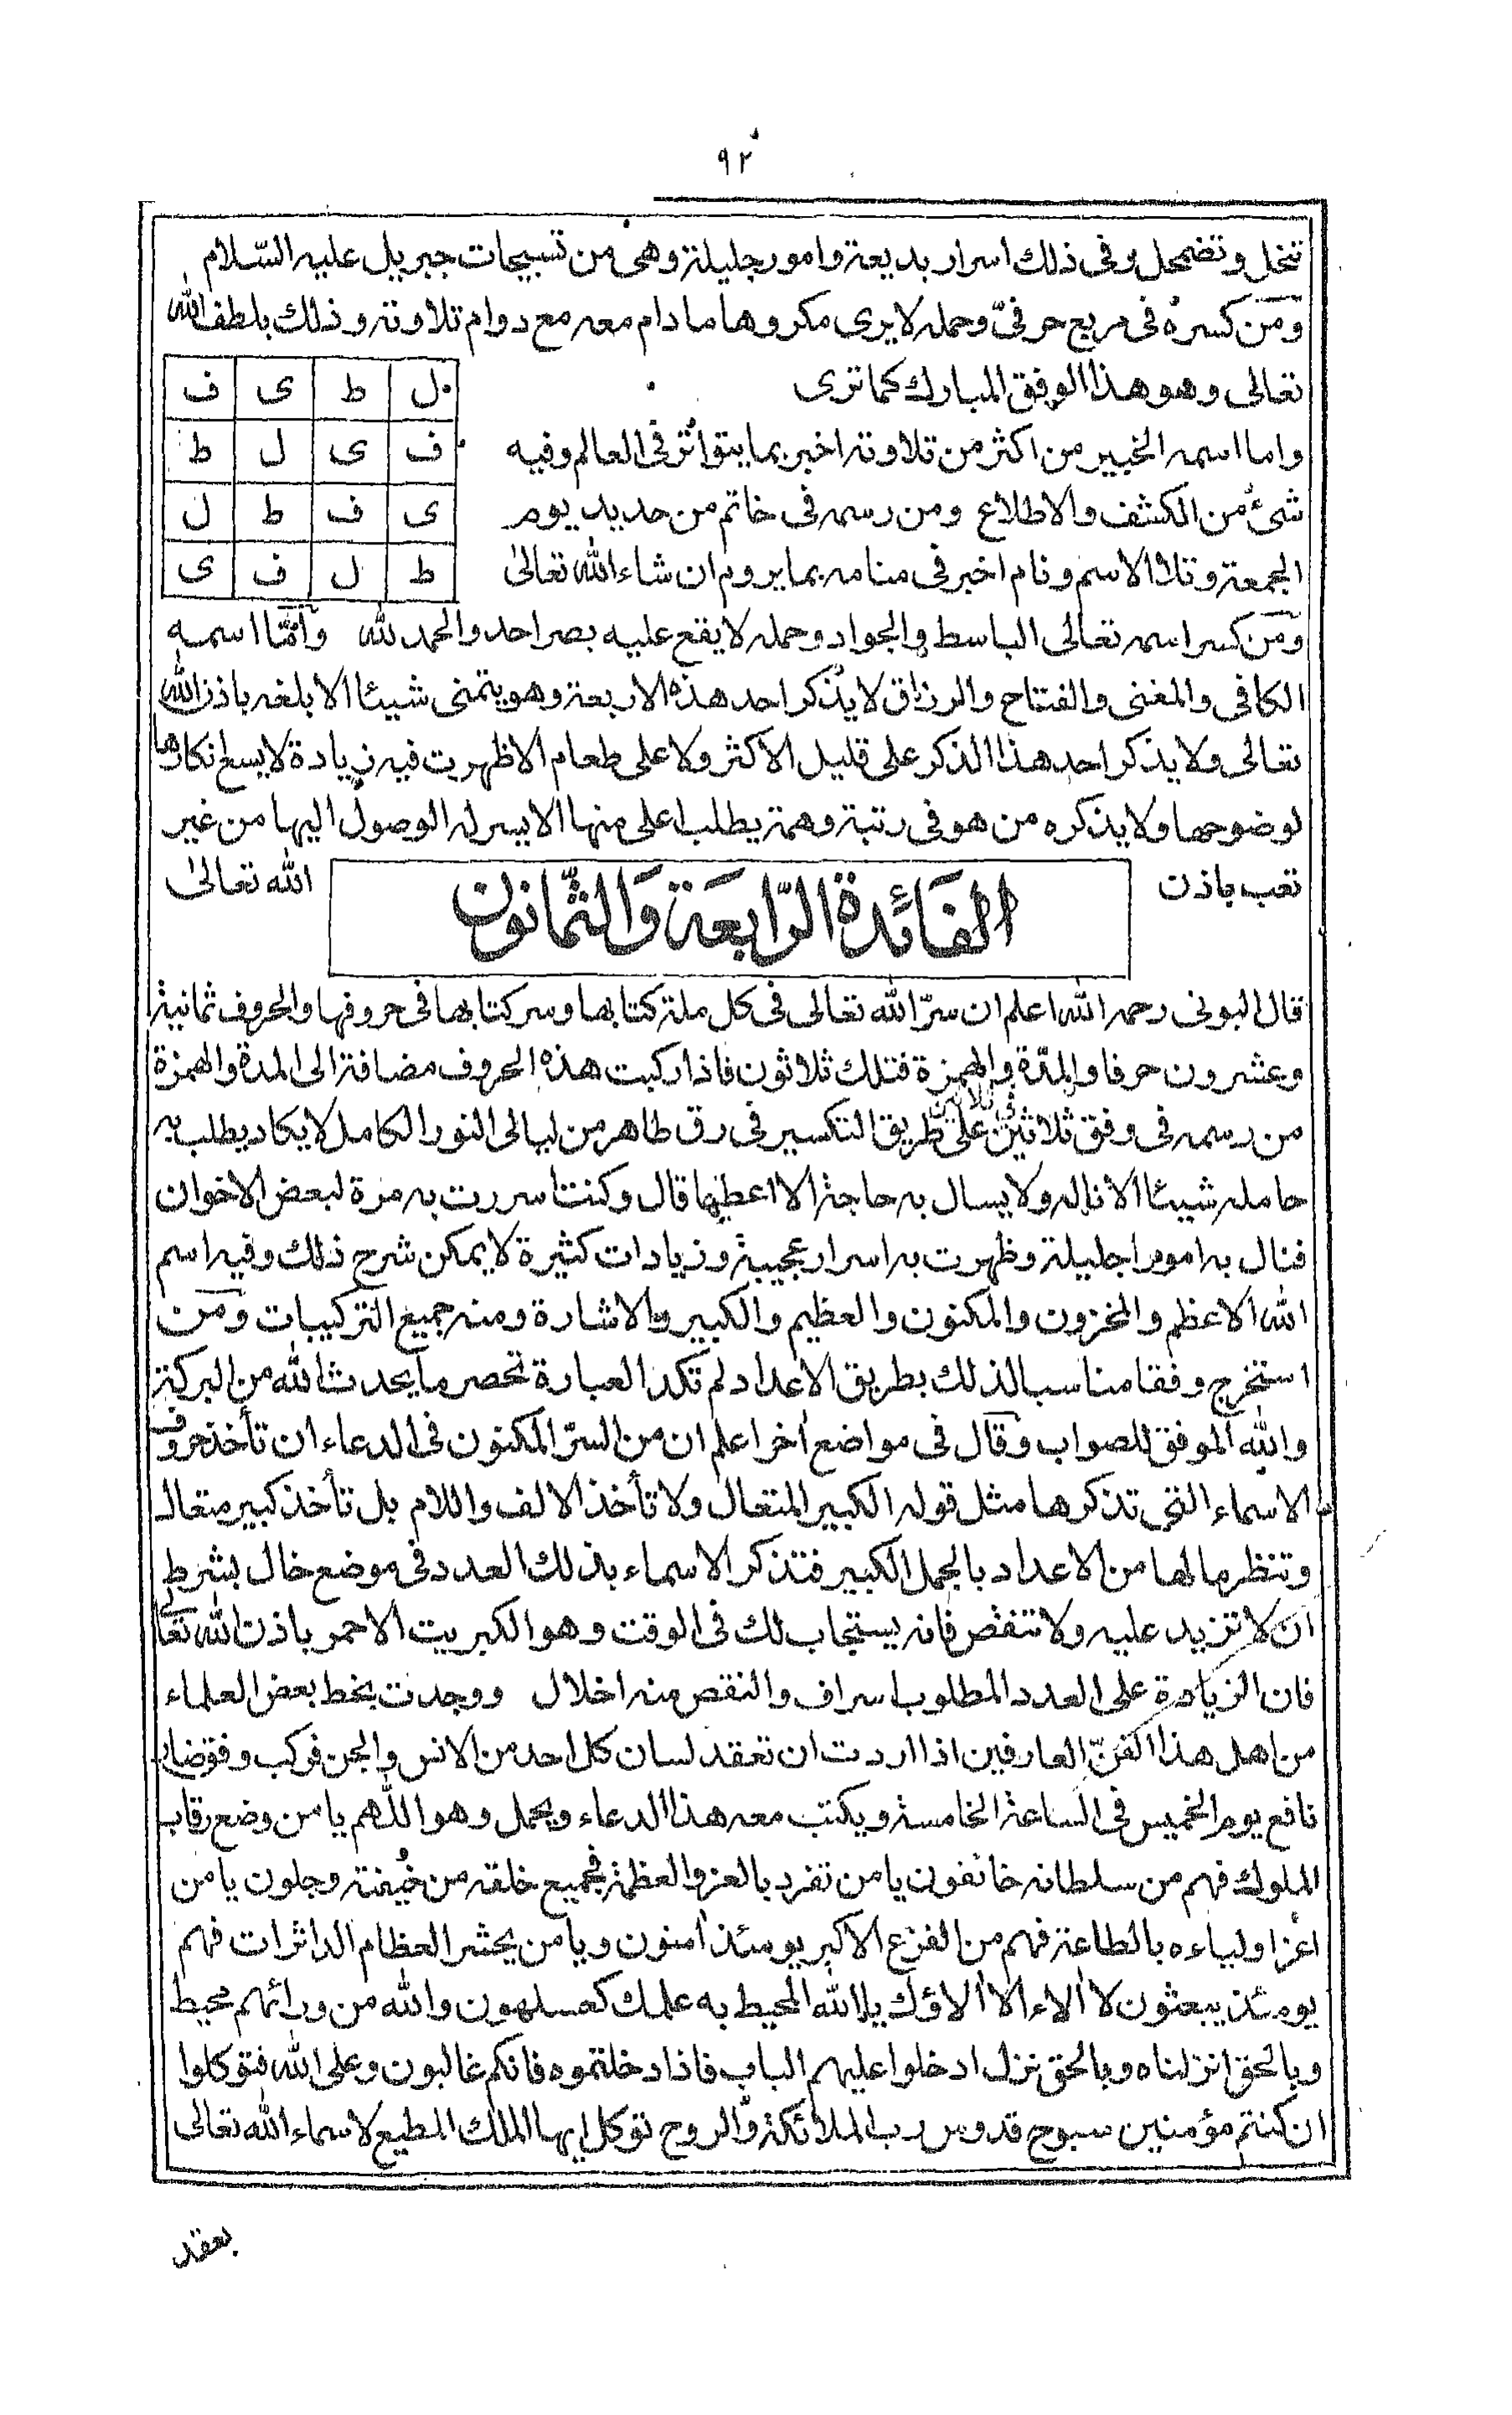 ٩٢
تنحل وتضمحل وفى ذلك اسرار بديعة وامور جليلة وهى من تسبيحات جبريل عليه السّلام
ومن كسره فى مربع حرفىّ وحمله لا يرى مكروها ما دام معه مع دوام تلاوته وذلك بلطف الله
تعالى وهو هذا الوفق المبارك كما ترى
ل ط ى ف
ف ى ل ط
ى ف ط ل
ط ل ف ى
واما اسمه الخبير من اكثر من تلاوته اخبر بما يتواتر فى العالم وفيه
شئ من الكشف والاطلاع ومن رسمه فى خاتم من حديد يوم
الجمعة وتلا الاسم ونام اخبر فى منامه بما يروم ان شاء الله تعالىٰ
ومن كسر اسمه تعالى الباسط والجواد وحمله لا يقع عليه بصر احد والحمد لله وأمّا اسمه
الكافى والمغنى والفتاح والرزاق لا يذكر احد هذه الاربعة وهو يتمنى شيئا الا بلغه باذن الله
تعالى ولا يذكر احد هذا الذكر على قليل الا كثر ولا على طعام الا ظهرت فيه زيادة لا يسع انكارها
لوضوحها ولا يذكره من هو فى رتبة وهمة يطلب اعلى منها الا يسر له الوصول اليها من غير
تعب باذن الله تعالىٰ
الفَائدة الرّابعَة وَالثّمانون
قال البونى رحمه الله اعلم ان سرّ الله تعالى فى كل ملة كتابها وسر كتابها فى حروفها والحروف ثمانية
وعشرون حرفا والمدّة والهمزة فتلك ثلاثون فاذا ركبت هذه الحروف مضافة الى المدة والهمزة
من رسمه فى وفق ثلاثين فى ثلاثين على طريق التكسير فى رق طاهر من ليالى النور الكامل لا يكاد يطلب به
حامله شيئا الا ناله ولا يسال به حاجة الا اعطيها قال وكنت اسررت به مرة لبعض الاخوان
فنال به امورا جليلة وظهرت به اسرار عجيبة وزيادات كثيرة لا يمكن شرح ذلك وفيه اسم
الله الاعظم والمخزون والمكنون والعظيم والكبير والاشارة ومنه جميع التركيبات ومن
استخرج وفقا مناسبا لذلك بطريق الاعداد لم تكد العبارة تحصر ما يحدث الله من البركة
والله الموفق للصواب وقال فى مواضع اخر اعلم ان من السرّ المكنون فى الدعاء ان تأخذ حروف
الاسماء التى تذكرها مثل قوله الكبير المتعال ولا تأخذ الالف واللام بل تأخذ كبير متعال
وتنظر مالها من الاعداد بالجمل الكبير فتذكر الاسماء بذلك العدد فى موضع خال بشرط
ان لا تزيد عليه ولا تنقص فانه يستجاب لك فى الوقت وهو الكبريت الاحمر باذن الله تعالى
فان الزيادة على العدد المطلوب اسراف والنقص منه اخلال ووجدت بخط بعض العلماء
من اهل هذا الفنّ العارفين اذا اردت ان تعقد لسان كل احد من الانس والجن فركب وفق ضار
نافع يوم الخميس فى الساعة الخامسة ويكتب معه هذا الدعاء ويحمل وهو اللهم يا من وضع رقاب
الملوك فهم من سلطانه خائفون يا من تفرد بالعز والعظمة فجميع خلقه من خيفته وجلون يا من
اعز اولياءه بالطاعة فهم من الفزع الاكبر يومئذ امنون ويا من يحشر العظام الداثرات فهم
يومئذ يبعثون لا الاء الا الاؤك يا الله المحيط به علمك كعسلهون والله من ورائهم محيط
وبالحق انزلناه وبالحق نزل ادخلوا عليهم الباب فاذا دخلتموه فانكم غالبون وعلى الله فتوكلوا
ان كنتم مؤمنين سبوح قدوس رب الملائكة والروح توكل ايها الملك المطيع لاسماء الله تعالى
بعقد